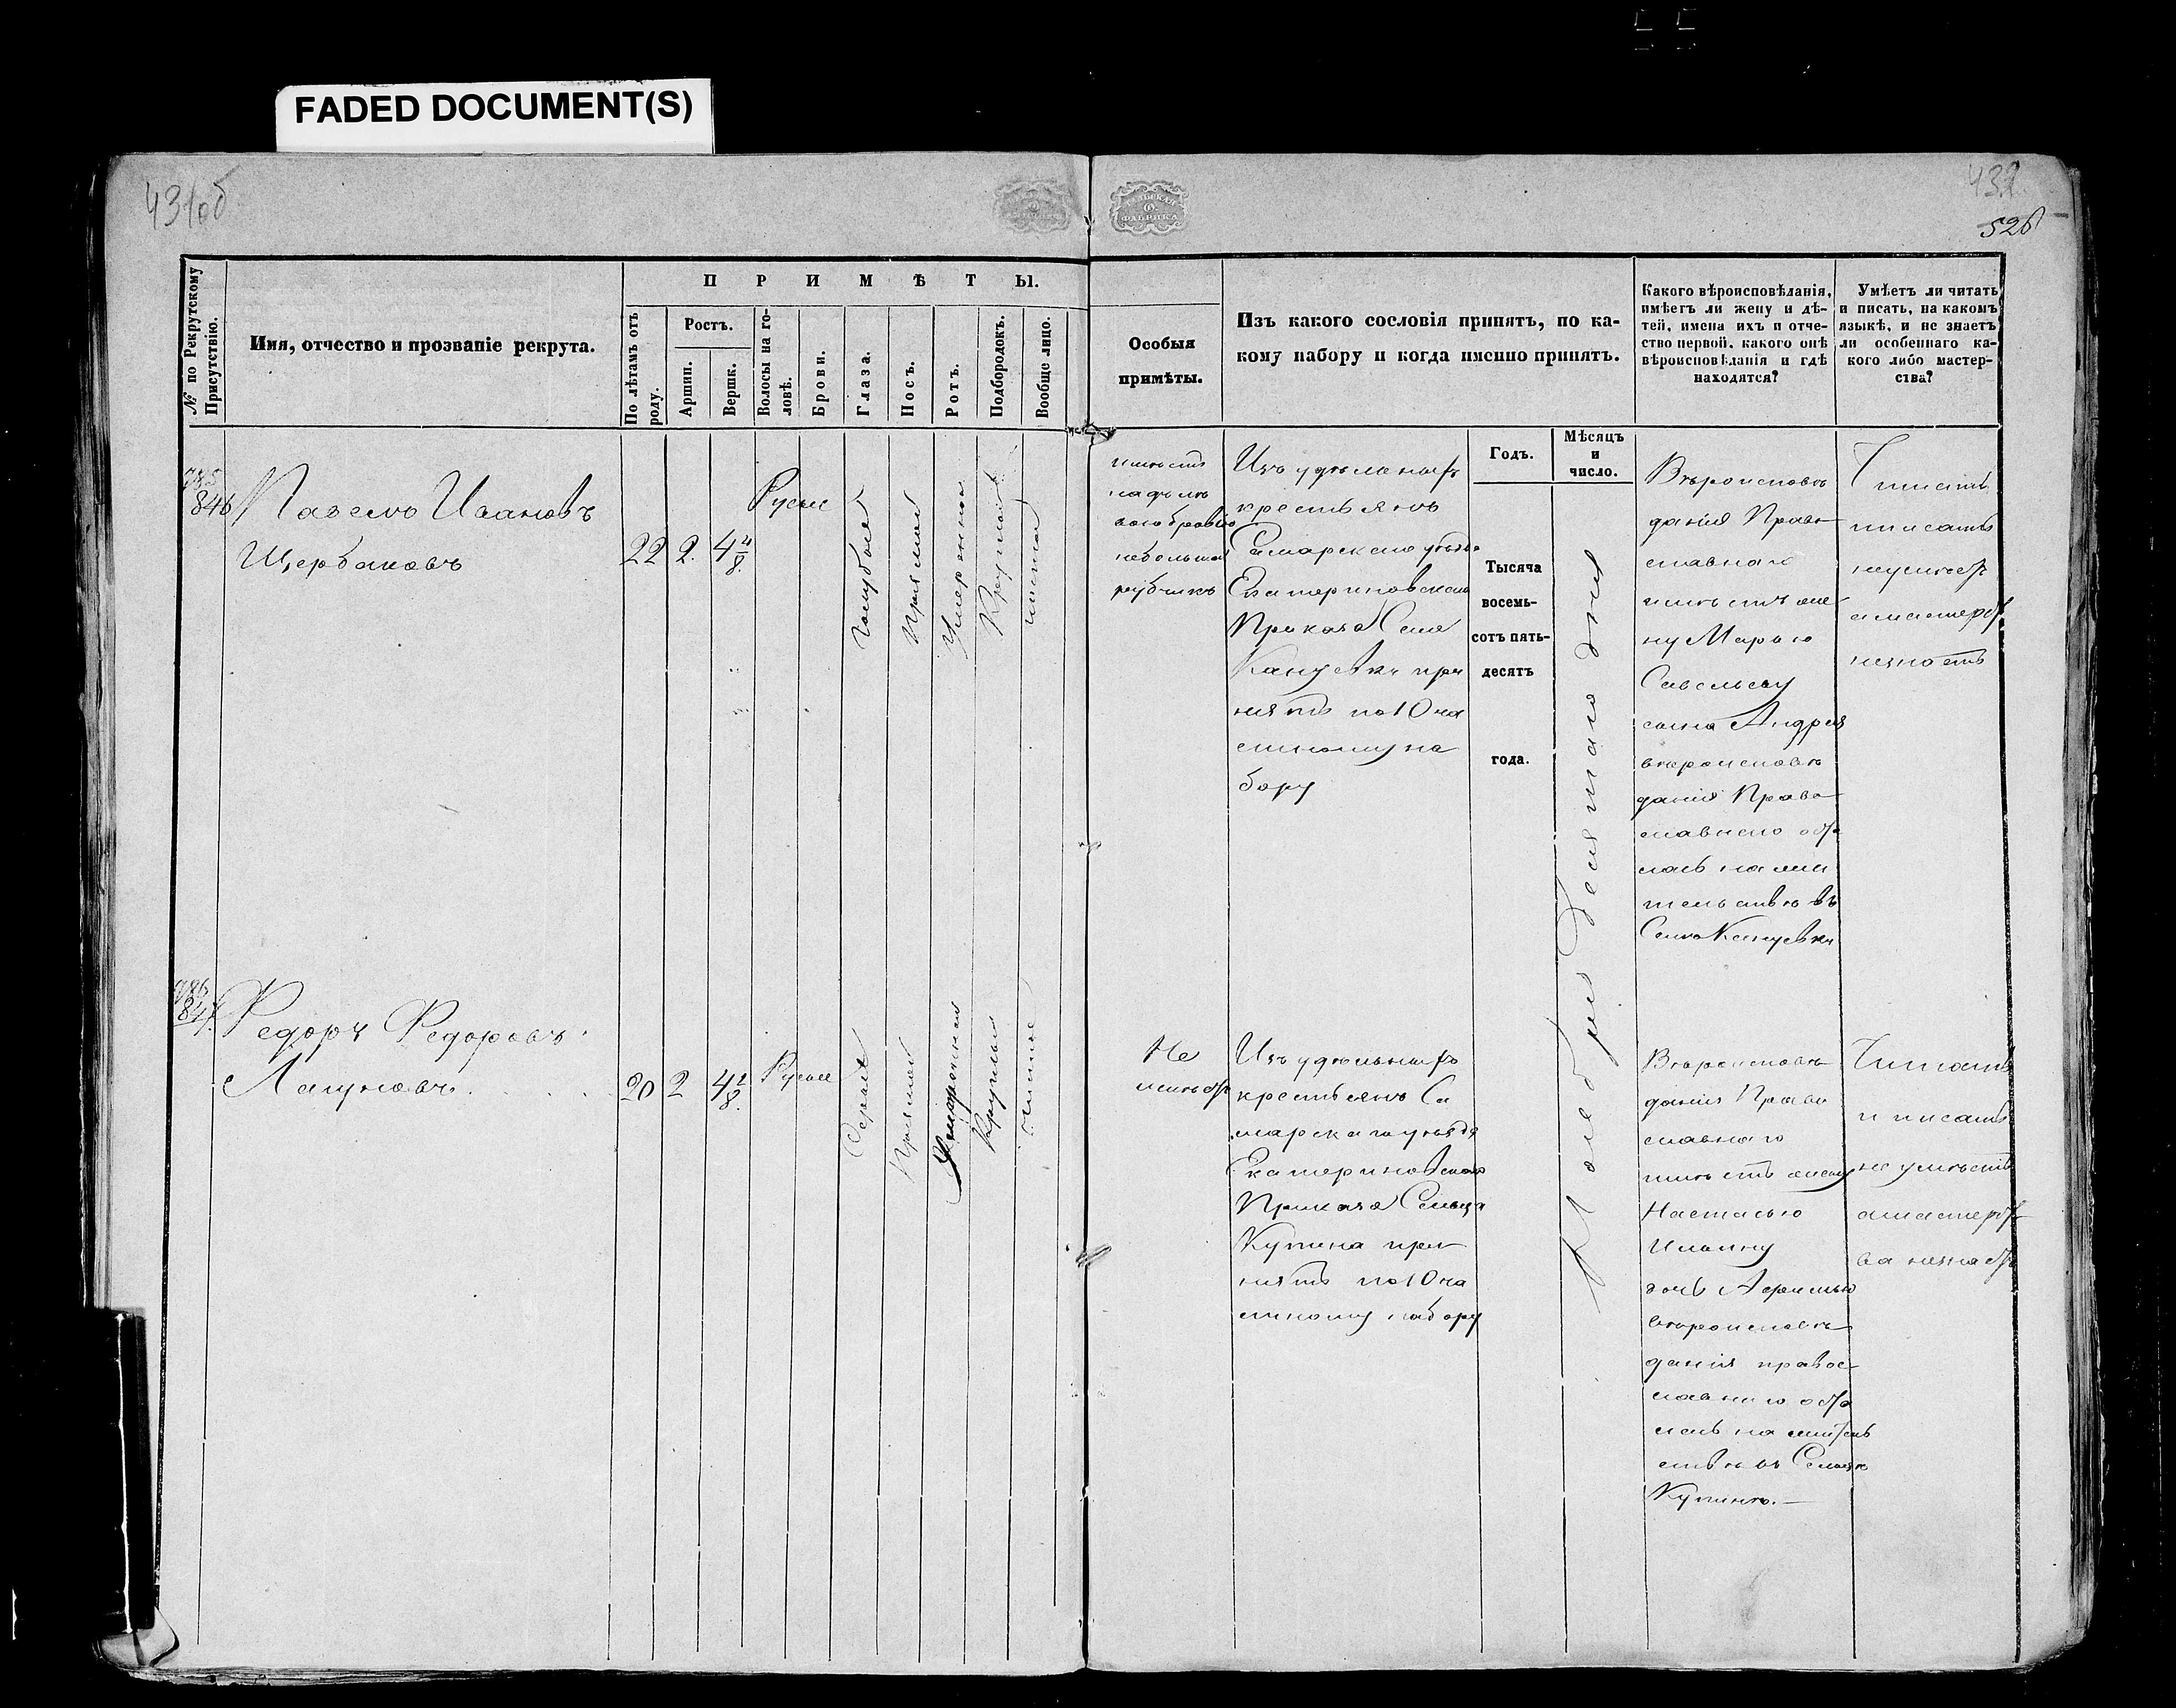 FADED DOCUMENT(S)
431об
432
526
№ по Рекрутскому Присутствію.
Имя, отчество и прозваніе рекрута.
ПРИМѢТЫ.
По лѣтамъ отъ роду.
Ростъ.
Аршин.
Вершк.
Волосы на головѣ.
Брови.
Глаза.
Носъ.
Ротъ.
Подбородокъ.
Вообще лицо.
Особыя
примѣты.
Изъ какого сословія принятъ, по ка-
кому набору и когда именно принятъ.
Годъ.
Мѣсяцъ
и
число.
Какого вѣроисповѣданія,
имѣетъ ли жену и дѣ-
тей, имена ихъ и отче-
ство первой, какого онѣ
вѣроисповѣданія и гдѣ
находятся?
Умѣетъ ли читать
и писать, на какомъ
языкѣ, и не знаетъ
ли особеннаго ка-
кого либо мастер-
ства?
785
846
Павелъ Ивановъ
Щербаковъ
22
2.
4 4/8.
Русые
Голубые
Прямой
Умеренной
Круглой
чистое
имѣетъ
надъ
бровью
небольшой
рубчикъ
Изъ удѣльныхъ
крестьянъ
Самарскаго уѣзда
Екатериновскаго
Приказа Села
Кануевки при
нятъ по 10 ча
стному на
бору
Тысяча
восемь-
сотъ пять-
десятъ
года.
Ноября десятаго дня
Вѣроисповѣ
данія Право
славнаго
имѣетъ же
ну Марью
Савельеву
сына Андрея
вѣроисповѣ
данія Право
славнаго оста
лась на жи
тельствѣ въ
Селѣ Кануевки
Читать
писать
неумѣетъ
а мастерст
незнаетъ
786
847.
Федоръ Федоровъ
Лагуновъ.
20
2
4 2/8.
Русые
Серые
Прямой
Умеренной
Круглый
чистое
Не
имѣетъ
Изъ удѣльныхъ
крестьянъ Са
марскаго уѣзда
Екатериновскаго
Приказа Сельца
Купина при
нятъ по 10 ча
стному набору
Вѣроисповѣ
данія Право
славнаго
имѣетъ жену
Настасью
Ильину
дочь
вѣроисповѣ
данія правос
лавнаго оста
лись на житель
ствѣ въ Сельцѣ
Купинѣ.
Читать
и писать
не умѣетъ
а мастерст
ва незнаетъ